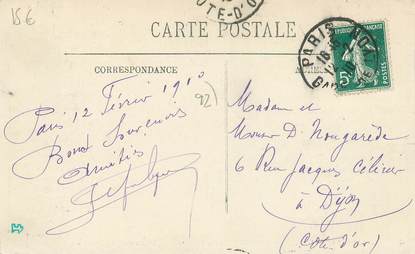 15 €
CÔTE-D'O
CARTE POSTALE
CORRESPONDANCE
PARIS
GARE
RÉPUBLIQUE FRANÇAISE
5c
POSTES
92
Paris 12 Février 1910
Bons Souvenirs
Amitiés
Madame et
Monsr D. Nougarède
6 Rue Jacques Cellerier
à Dijon
(Côte d'or)